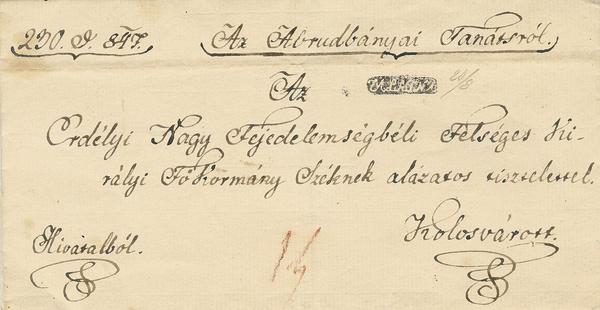 230. d. 847. Az Abrudbányai Tanátsról.
Az 28/3
Erdélyi Nagy Fejedelemségbéli Felséges Ki-
rályi Fő Kormány Széknek alázatos tisztelettel.
Hivatalból. Kolosvárott.